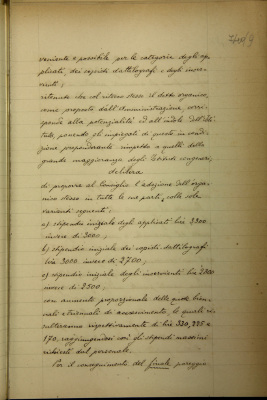 veniente e possibile per le categorie degli ap-
plicati, dei copisti dattilografi e degli inser-
vienti;
ritenuto che col ritocco stesso il detto organico,
come proposto dall'Amministrazione, corri-
sponde alla potenzialità ed all'indole dell'Isti-
tuto, ponendo gli impiegati di questo in condi-
zione preponderante rimpetto a quelli della
grande maggioranza degli Istituti congeneri;
delibera
di proporre al Consiglio l'adozione dell'orga-
nico stesso in tutte le sue parti, colle sole
varianti seguenti:
a) stipendio iniziale degli applicati lire 3300
invece di 3000;
b) stipendio iniziale dei copisti dattilografi
lire 3000 invece di 2700;
c) stipendio iniziale degli inservienti lire 2800
invece di 2500;
con aumento proporzionale delle quote bien-
nali e triennali di accrescimento, le quali ri-
sulteranno rispettivamente di lire 320, 225 e
170, raggiungendosi così gli stipendi massimi
richiesti dal personale.
Per il conseguimento del finale pareggio